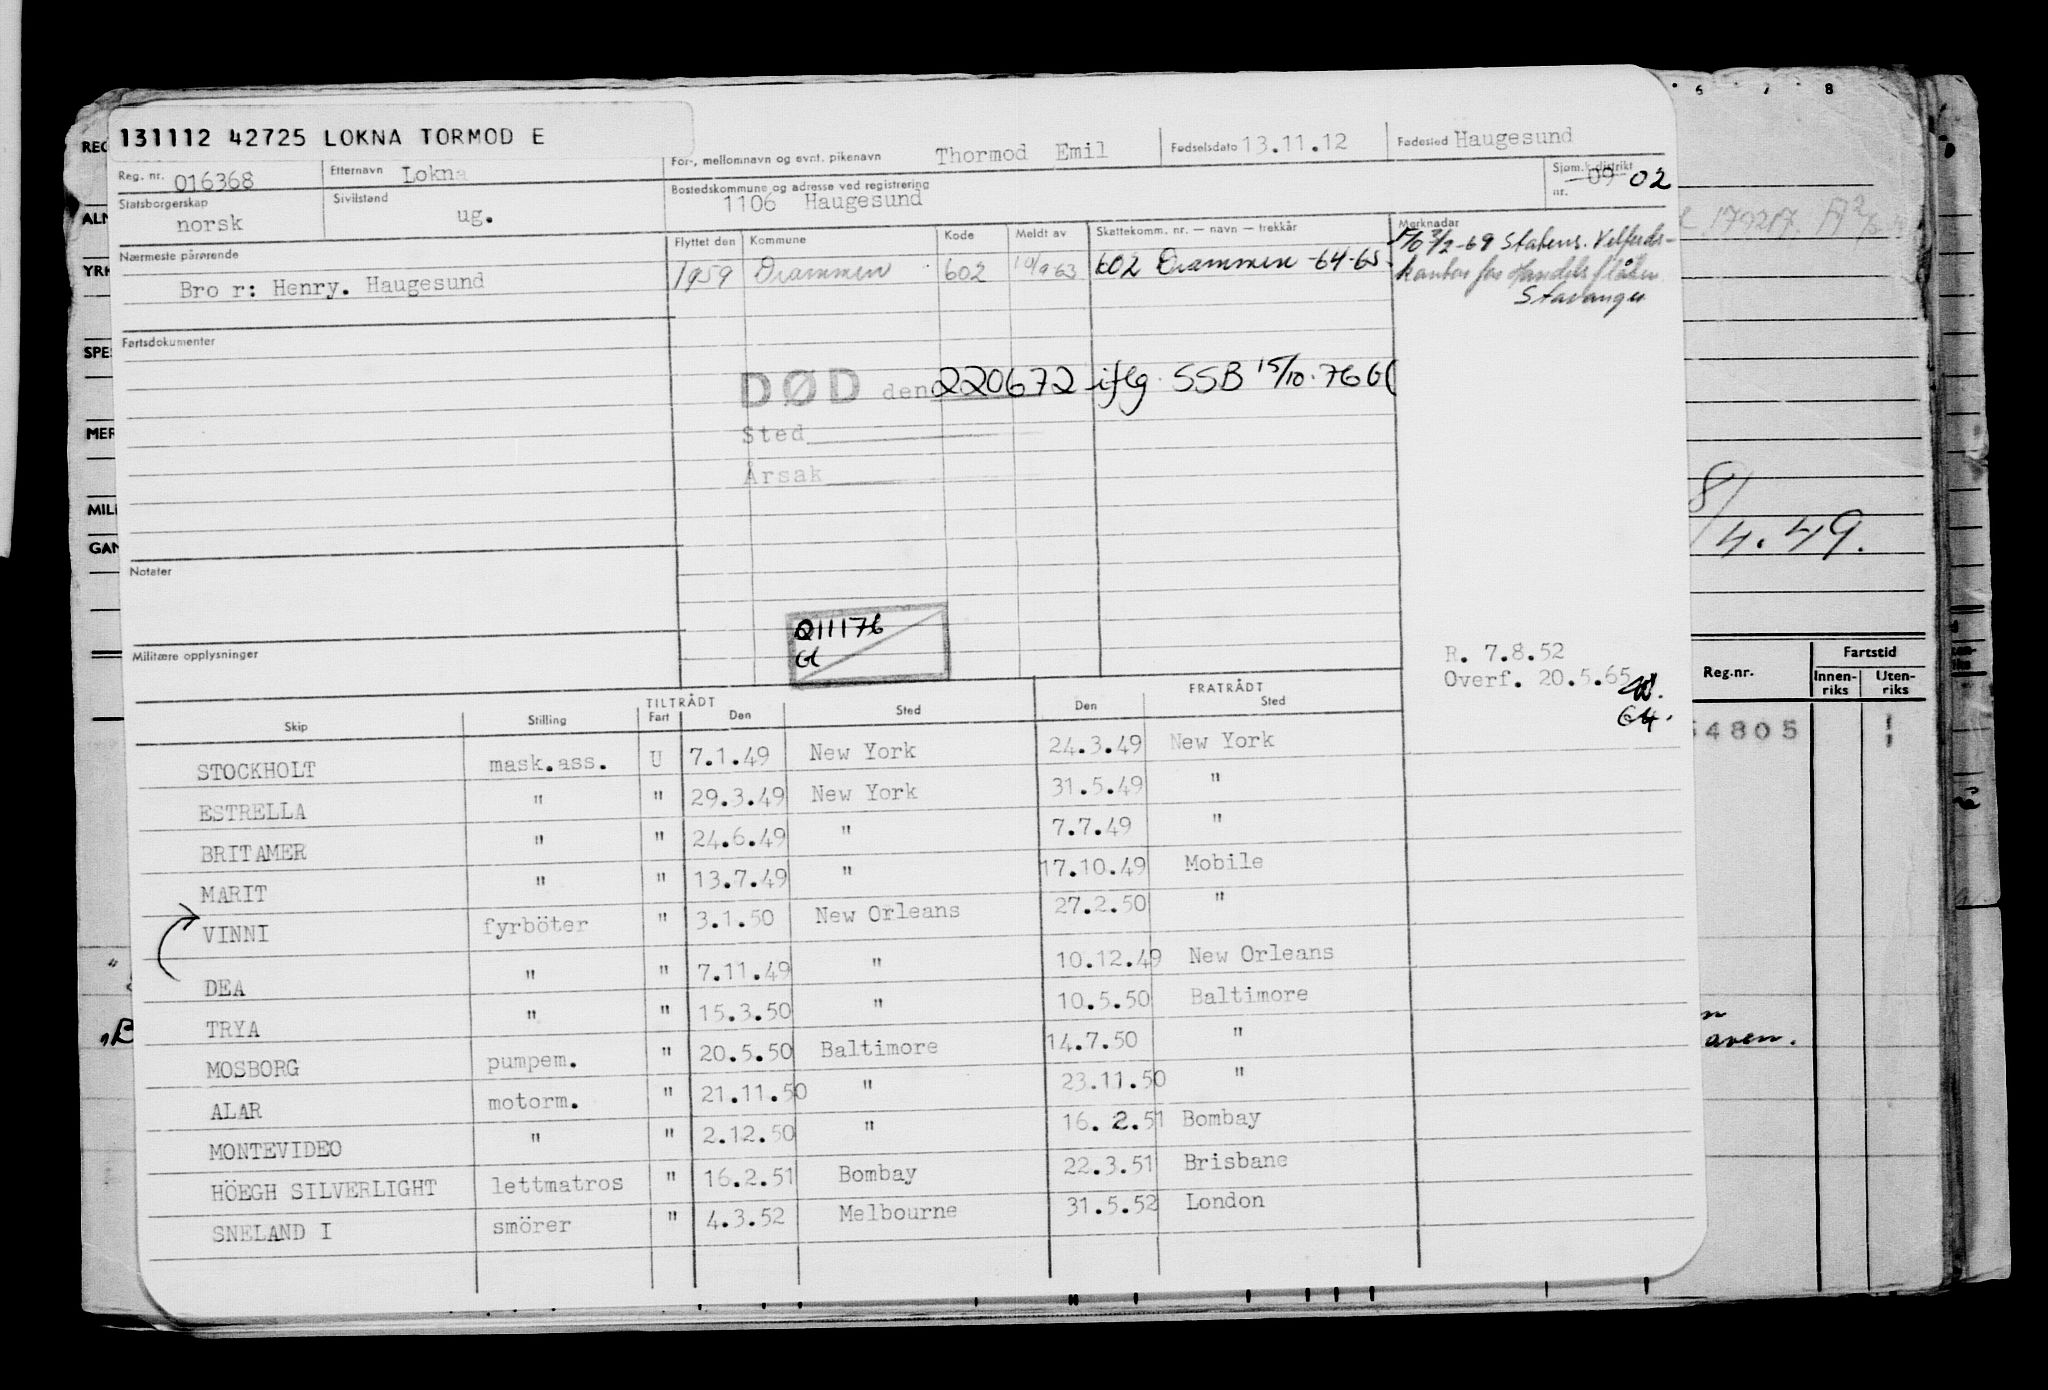 131112 42725 LOKNA TORMOD E
For-, mellomnavn og evnt. pikenavn Thormod Emil
Fødselsdato 13.11.12
Fødested Haugesund
Reg. nr. 016368
Etternavn Lokna
Bostedskommune og adresse ved registrering
1106 Haugesund
Sjøm.k.distrikt
nr. 09 02
Statsborgerskap
norsk
Sivilstand
ug.
Nærmeste pårørende
Bro r: Henry. Haugesund
Flyttet den Kommune Kode Meldt av Skattekomm. nr. — navn — trekkår
1959 Drammen 602 10/9 63 602 Drammen -64-65
Merknadar
2/2-69 Statens. Velferds-
kontor for Handelsflåten
Stavanger
Fartsdokumenter
DØD den 220672 iflg. SSB 15/10.76 Gl
Sted
Årsak
Notater
011176
Gl
Militære opplysninger
R. 7.8.52
Overf. 20.5.65
64.
TILTRÅDT FRATRÅDT
Skip Stilling Fart Den Sted Den Sted
STOCKHOLT mask.ass. U 7.1.49 New York 24.3.49 New York
ESTRELLA " " 29.3.49 New York 31.5.49 "
BRITAMER " " 24.6.49 " 7.7.49 "
MARIT " " 13.7.49 " 17.10.49 Mobile
VINNI fyrböter " 3.1.50 New Orleans 27.2.50 "
DEA " " 7.11.49 " 10.12.49 New Orleans
TRYA " " 15.3.50 " 10.5.50 Baltimore
MOSBORG pumpem. " 20.5.50 Baltimore 14.7.50 "
ALAR motorm. " 21.11.50 " 23.11.50 "
MONTEVIDEO " " 2.12.50 " 16.2.51 Bombay
HÖEGH SILVERLIGHT lettmatros " 16.2.51 Bombay 22.3.51 Brisbane
SNELAND I smörer " 4.3.52 Melbourne 31.5.52 London
REG
ALM
YRK
SPE
MER
MILI
GAN
6 7 8
8/4.49.
Reg.nr.
Fartstid
Innen-
riks
Uten-
riks
54805
aven.